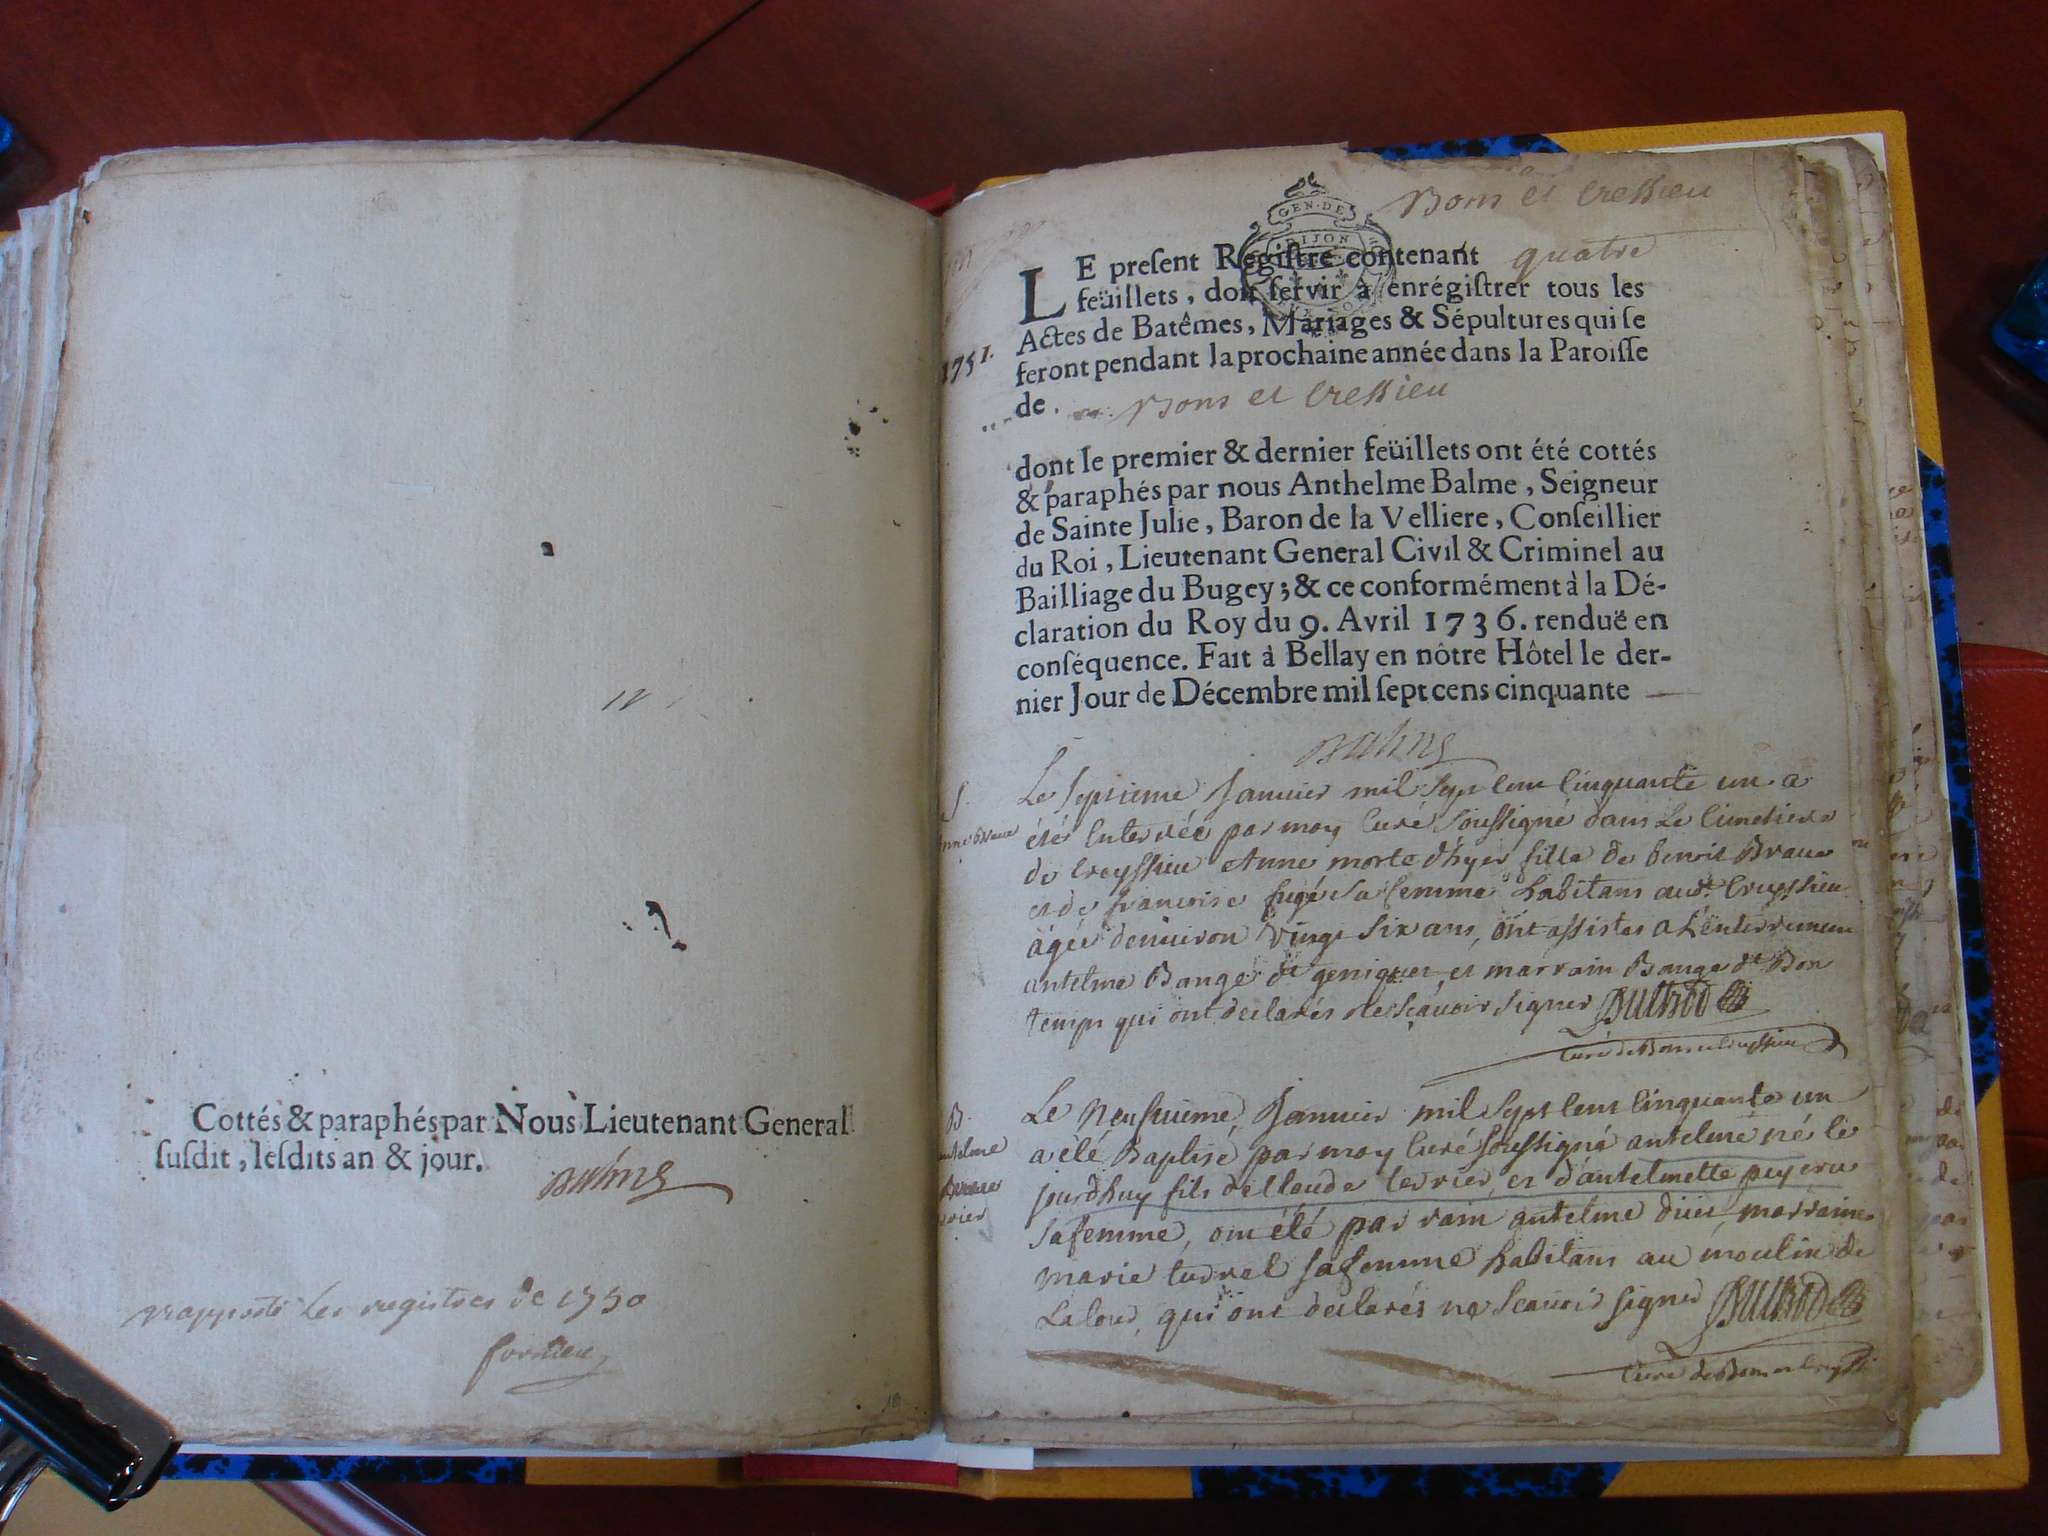 Cottés & paraphés par Nous Lieutenant General
susdit, lesdits an & jour.
Balme
rapporté les registres de 1750
10
GEN. DE
DIJON
Bons et Cressieu
LE present Registre contenant quatre
feüillets, doit servir à enrégistrer tous les
Actes de Batêmes, Mariages & Sépultures qui se
1751.
feront pendant la prochaine année dans la Paroisse
de Bons et Cressieu
dont le premier & dernier feüillets ont été cottés
& paraphés par nous Anthelme Balme, Seigneur
de Sainte Julie, Baron de la Velliere, Conseillier
du Roi, Lieutenant General Civil & Criminel au
Bailliage du Bugey; & ce conformément à la Dé-
claration du Roy du 9. Avril 1736. renduë en
conséquence. Fait à Bellay en nôtre Hôtel le der-
nier Jour de Décembre mil sept cens cinquante
Balme
S.
Le septieme Janvier mil sept cent cinquante un a
étés enterrée par moy Curé soussigné dans le Cimetiere
de Creyssieu Anne morte d'hyer fille de benoit Braue
et de francoise sa femme habitans aud. Creyssieu
agée d'environ vingt six ans, ont assistes a l'enterrement
antelme Bange dt geniquet, et marrain Bange dt Bon
temps qui ont declarés ne sçavoir signer
Curé de Bons et Creyssieu
B.
antelme
Le neufvieme Janvier mil sept cent cinquante un
a été Baptisé par moy Curé soussigné antelme né le
jourdhuy fils de Claude levrier et d'antelmette
sa femme, ont été parrain antelme marraine
marie sa femme habitans au moulin de
qui ont declarés ne scauoir signer
Curé de Bons et Creyssieu